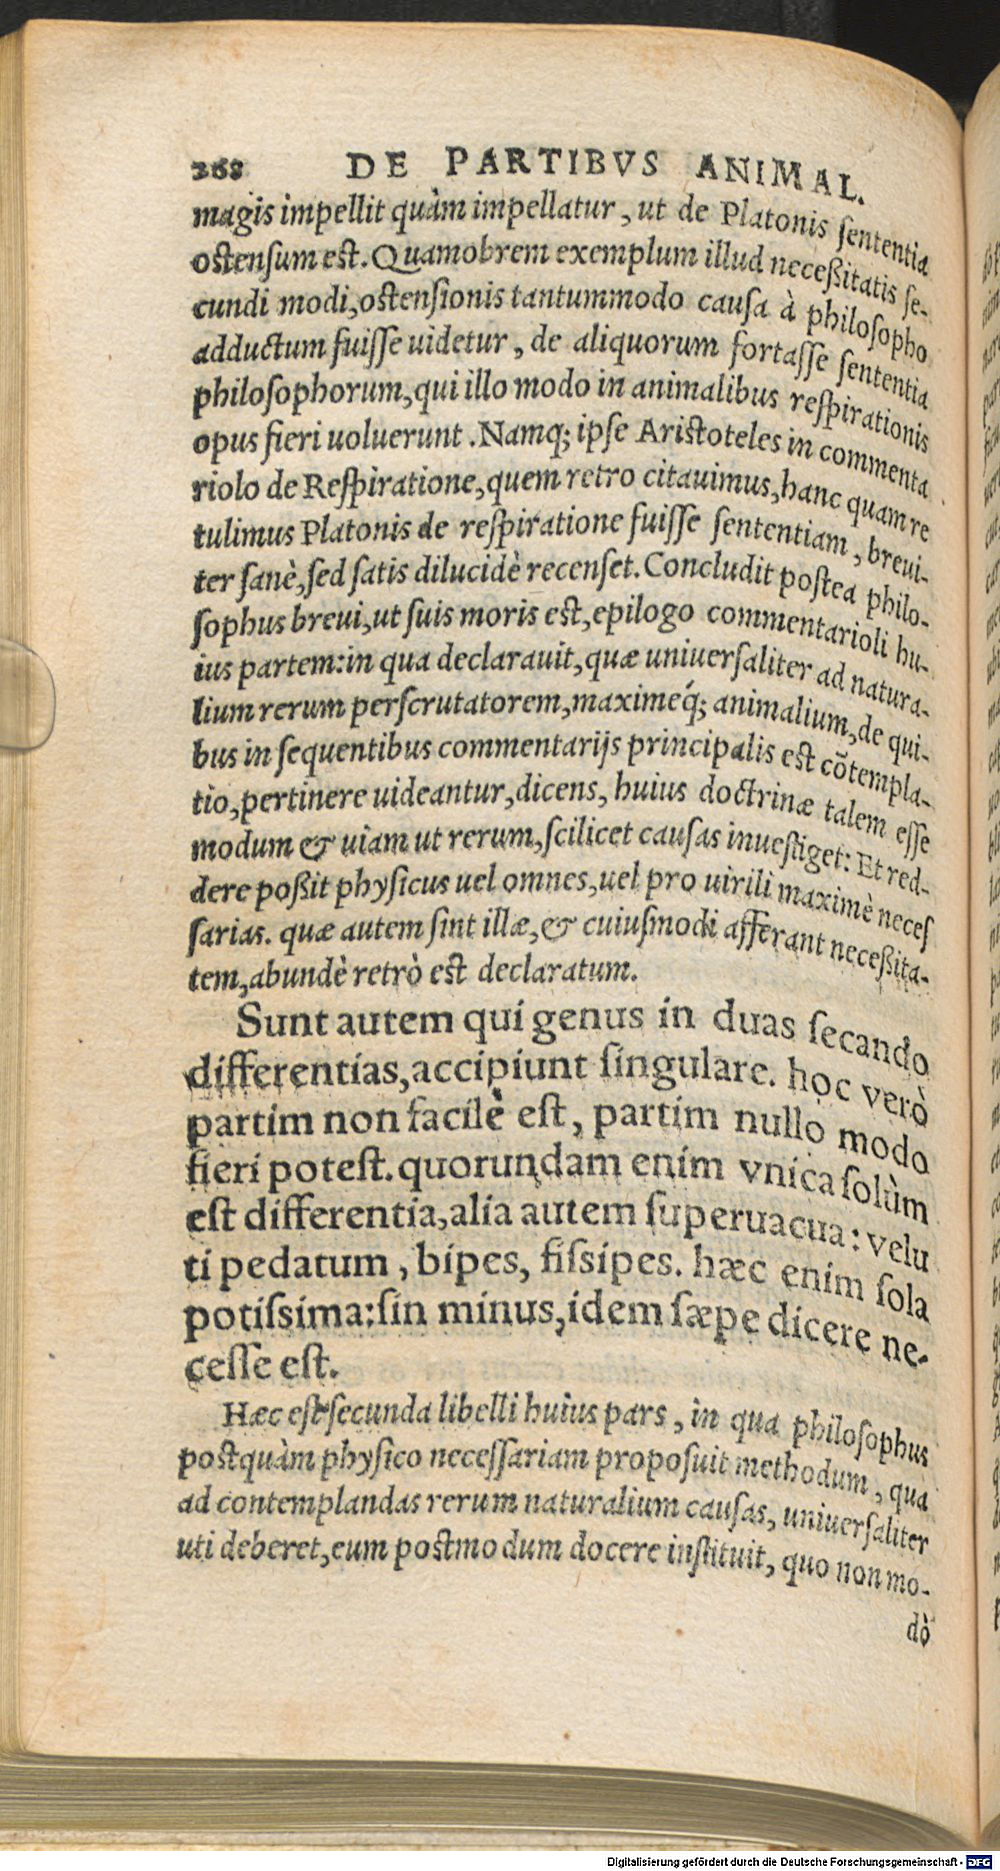 268 DE PARTIBVS ANIMAL.
magis impellit quàm impellatur, ut de Platonis ſententia
ostenſum est. Quamobrem exemplum illud neceßitatis ſe-
cundi modi, ostenſionis tantummodo cauſa à philoſopho
adductum fuiſſe uidetur, de aliquorum fortaſſe ſententia
philoſophorum, qui illo modo in animalibus reſpirationis
opus fieri uoluerunt. Namq; ipſe Aristoteles in commenta
riolo de Reſpiratione, quem retro citauimus, hanc quam re
tulimus Platonis de reſpiratione fuiſſe ſententiam, breui-
ter ſanè, ſed ſatis dilucidè recenſet. Concludit poſtea philo-
ſophus breui, ut ſuis moris est, epilogo commentarioli hu-
ius partem: in qua declarauit, quæ uniuerſaliter ad natura-
lium rerum perſcrutatorem, maximeq́; animalium, de qui-
bus in ſequentibus commentarijs principalis est cõtempla-
tio, pertinere uideantur, dicens, huius doctrinæ talem eſſe
modum & uiam ut rerum, ſcilicet cauſas inuestiget: Et red-
dere poßit phyſicus uel omnes, uel pro uirili maximè neceſ
ſarias. quæ autem ſint illæ, & cuiuſmodi afferant neceßita-
tem, abundè retrò est declaratum.
Sunt autem qui genus in duas ſecando
differentias, accipiunt ſingulare. hoc verò
partim non facilè eſt, partim nullo modo
fieri poteſt. quorundam enim vnica ſolùm
eſt differentia, alia autem ſuperuacua: velu
ti pedatum, bipes, fiſsipes. hæc enim ſola
potiſsima: ſin minus, idem ſæpe dicere ne-
ceſſe eſt.
Hæc est ſecunda libelli huius pars, in qua philoſophus
postquàm phyſico neceſſariam propoſuit methodum, qua
ad contemplandas rerum naturalium cauſas, uniuerſaliter
uti deberet, eum postmodum docere inſtituit, quo non mo-
dò
Digitalisierung gefördert durch die Deutsche Forschungsgemeinschaft - DFG